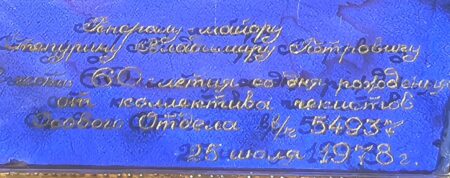 Генералу-майору
Владимиру Петровичу
60 летия со дня рождения
от коллектива чекистов
Особого Отдела в/ч 54937
25 июля 1978 г.